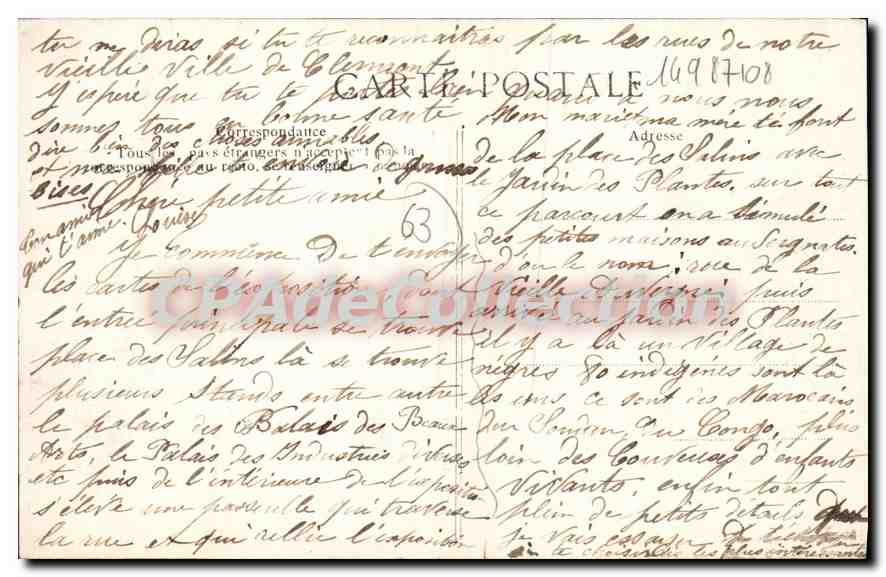 tu me diras si tu te reconnaîtras par les rues de notre
Vieille Ville de Clermont
J'espère que tu te portes bien quant à nous nous
sommes tous en bonne santé Mon mari et ma mère te font
dire bien des choses aimables
et moi de grosses
Bises
CARTE POSTALE
14987108
Correspondance
Tous les pays étrangers n'acceptent pas la
correspondance au recto, se renseigner
Adresse
63
Chère petite amie
Ton amie Louise
qui t'aime.
Je commence de t'envoyer
les cartes de l'exposition, donc
l'entrée principale se trouve
place des Salins là se trouve
plusieurs stands entre autre
le palais des Palais des Beaux
Arts, le Palais des Industries diverses
etc puis de l'intérieur de l'exposition
s'élève une passerelle qui traverse
la rue et qui rellie l'exposition
de la place des Salins avec
le Jardin des Plantes. sur tout
ce parcourt on a simulé
des petites maisons auvergnates.
d'ou le nom: rue de la
Vieille Auvergne, puis
arrivé au Jardin des Plantes
il y a là un Village de
nègres 80 indigénes sont là
les uns ce sont des Marocains
du Soudan, du Congo, plus
loin des Couveuses d'enfants
Vivants, enfin tout
plein de petits détails
je vais essayer de
te choisir les plus intéressantes
CPAdeCollection